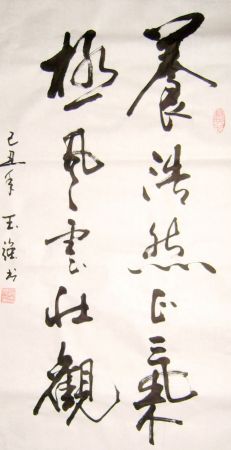 養浩然正氣
極風雲壯觀
己丑年 玉強书